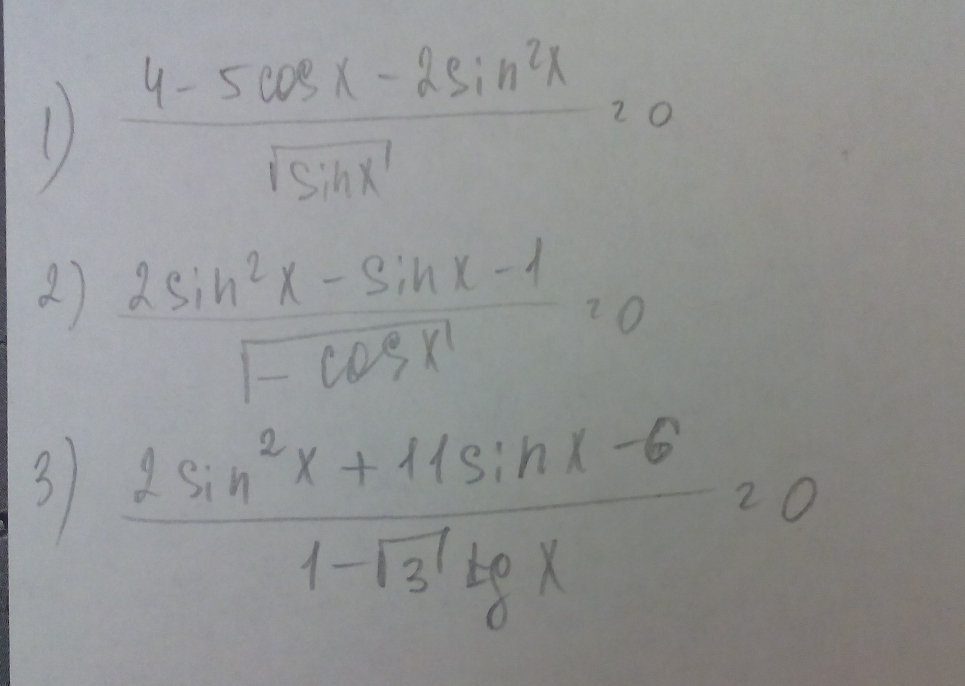 1) (4 - 5cosx - 2sin²x) / √(sinx) = 0
2) (2sin²x - sinx - 1) / √(-cosx) = 0
3) (2sin²x + 11sinx - 6) / (1 - √3 tgx) = 0